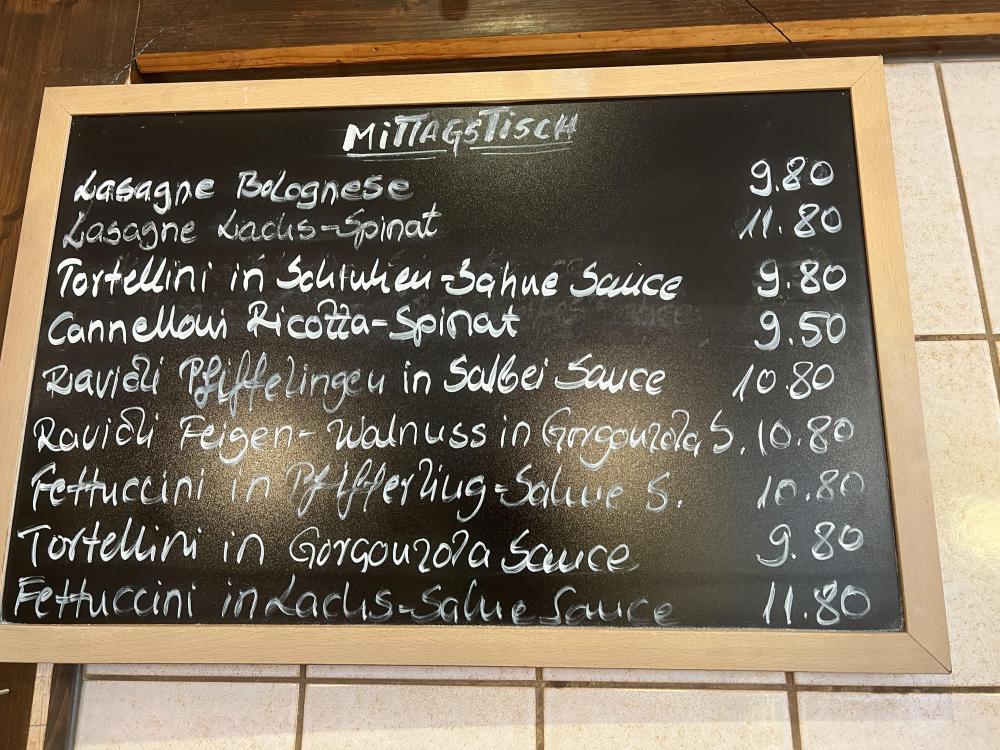 MITTAGSTISCH
Lasagne Bolognese 9.80
Lasagne Lachs-Spinat 11.80
Tortellini in Schinken-Sahne Sauce 9.80
Cannelloni Ricotta-Spinat 9.50
Ravioli Pfifferlingen in Salbei Sauce 10.80
Ravioli Feigen-Walnuss in Gorgonzola S. 10.80
Fettuccini in Pfifferling-Sahne S. 10.80
Tortellini in Gorgonzola Sauce 9.80
Fettuccini in Lachs-Sahne Sauce 11.80